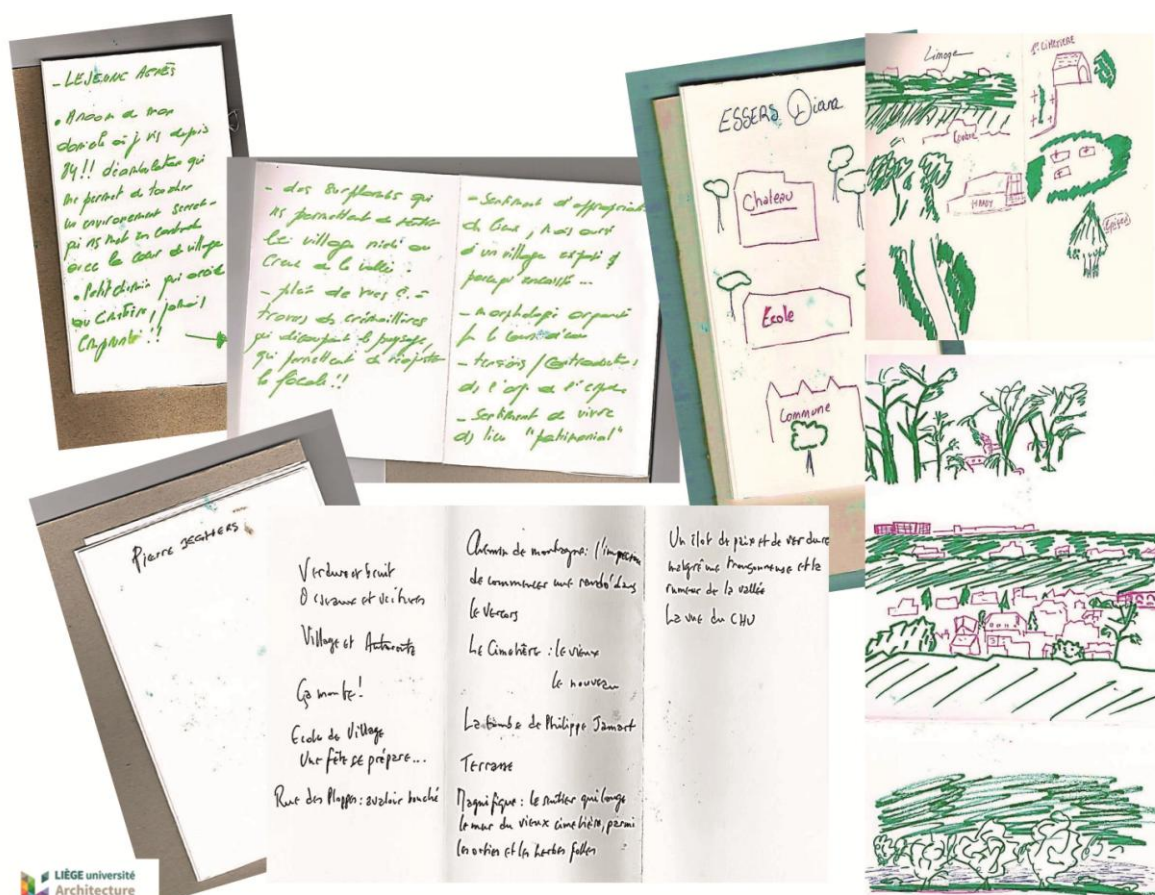 - LEJEUNE AGNÈS
domicile où j' vis depuis
84 !! déambulation qui
me permet de toucher
un environnement
qui ns met en contact
avec le cœur de village
• Petit chemin qui
au cimetière, jamais
emprunté !!
- des surplombs qui
ns permettent de
le village niché au
creux de la vallée.
- plein de vues
travers des crémaillères
qui découpent le paysage,
qui permettent de
la focale !!
- Sentiment d'appropriat°
de lieux, mais aussi
d'un village
- morphologie
- tensions / contradictions
de l'
- Sentiment de vivre
ds lieu "patrimonial"
ESSERS Diana
Chateau
École
Commune
Limoge
Cimetière
Pierre JEGHERS
Verdure et bruit
Oiseaux et voitures
Village et Autoroute
Ça monte !
Ecole de Village
Une fête se prépare...
Rue des Ploppes : avaloir bouché
Chemin de montagne : l'impression
de commencer une rando dans
le Vercors
Le Cimetière : le vieux
le nouveau
La tombe de Philippe Jamart
Terrasse
Magnifique : le sentier qui longe
le mur du vieux cimetière, parmi
les orties et les herbes folles
Un îlot de paix et de verdure
malgré une tronçonneuse et la
rumeur de la vallée
La vue du CHU
LIÈGE université
Architecture